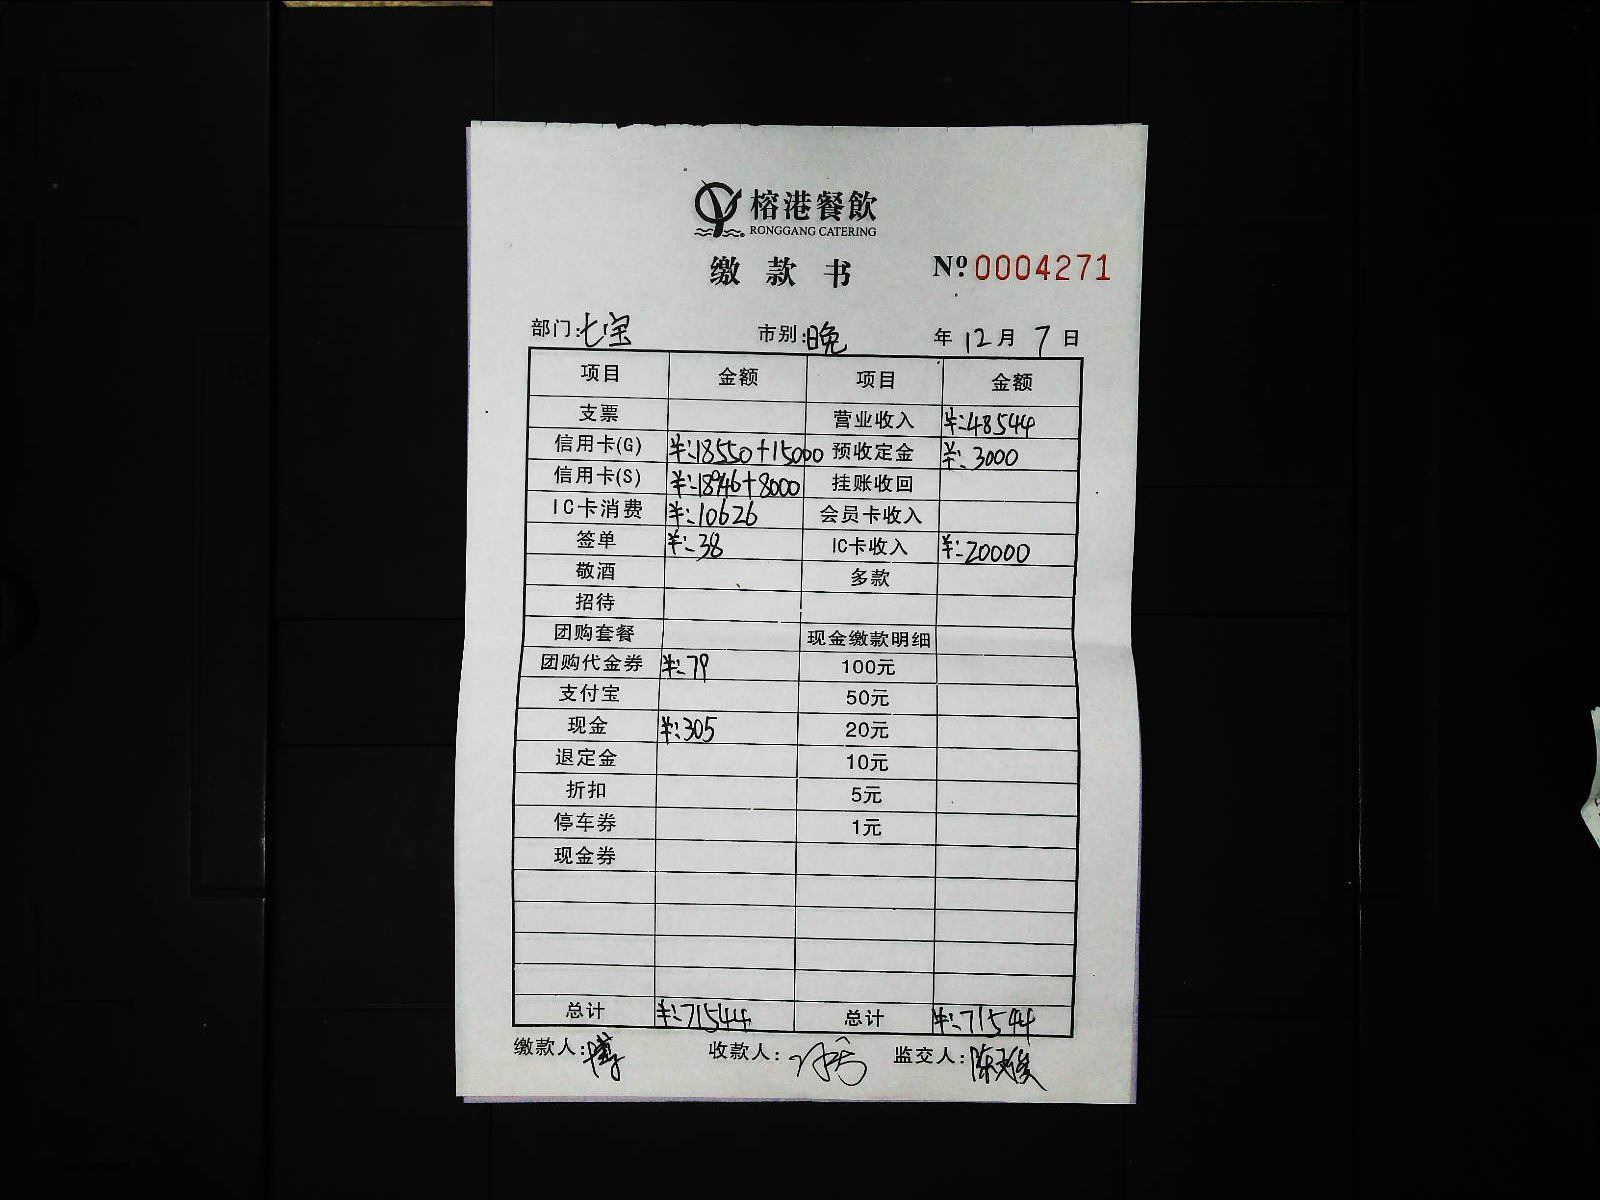 榕港餐飲
RONGGANG CATERING
缴款书 Nº 0004271
部门:七宝 市别:晚 年 12 月 7 日
项目 金额 项目 金额
支票 营业收入 ¥:48544
信用卡(G) ¥:18550+15000 预收定金 ¥:3000
信用卡(S) ¥:18946+8000 挂账收回
IC卡消费 ¥:10626 会员卡收入
签单 ¥:38 IC卡收入 ¥:20000
敬酒 多款
招待
团购套餐 现金缴款明细
团购代金券 ¥:79 100元
支付宝 50元
现金 ¥:305 20元
退定金 10元
折扣 5元
停车券 1元
现金券
总计 ¥:71544 总计 ¥:71544
缴款人: 收款人: 监交人: